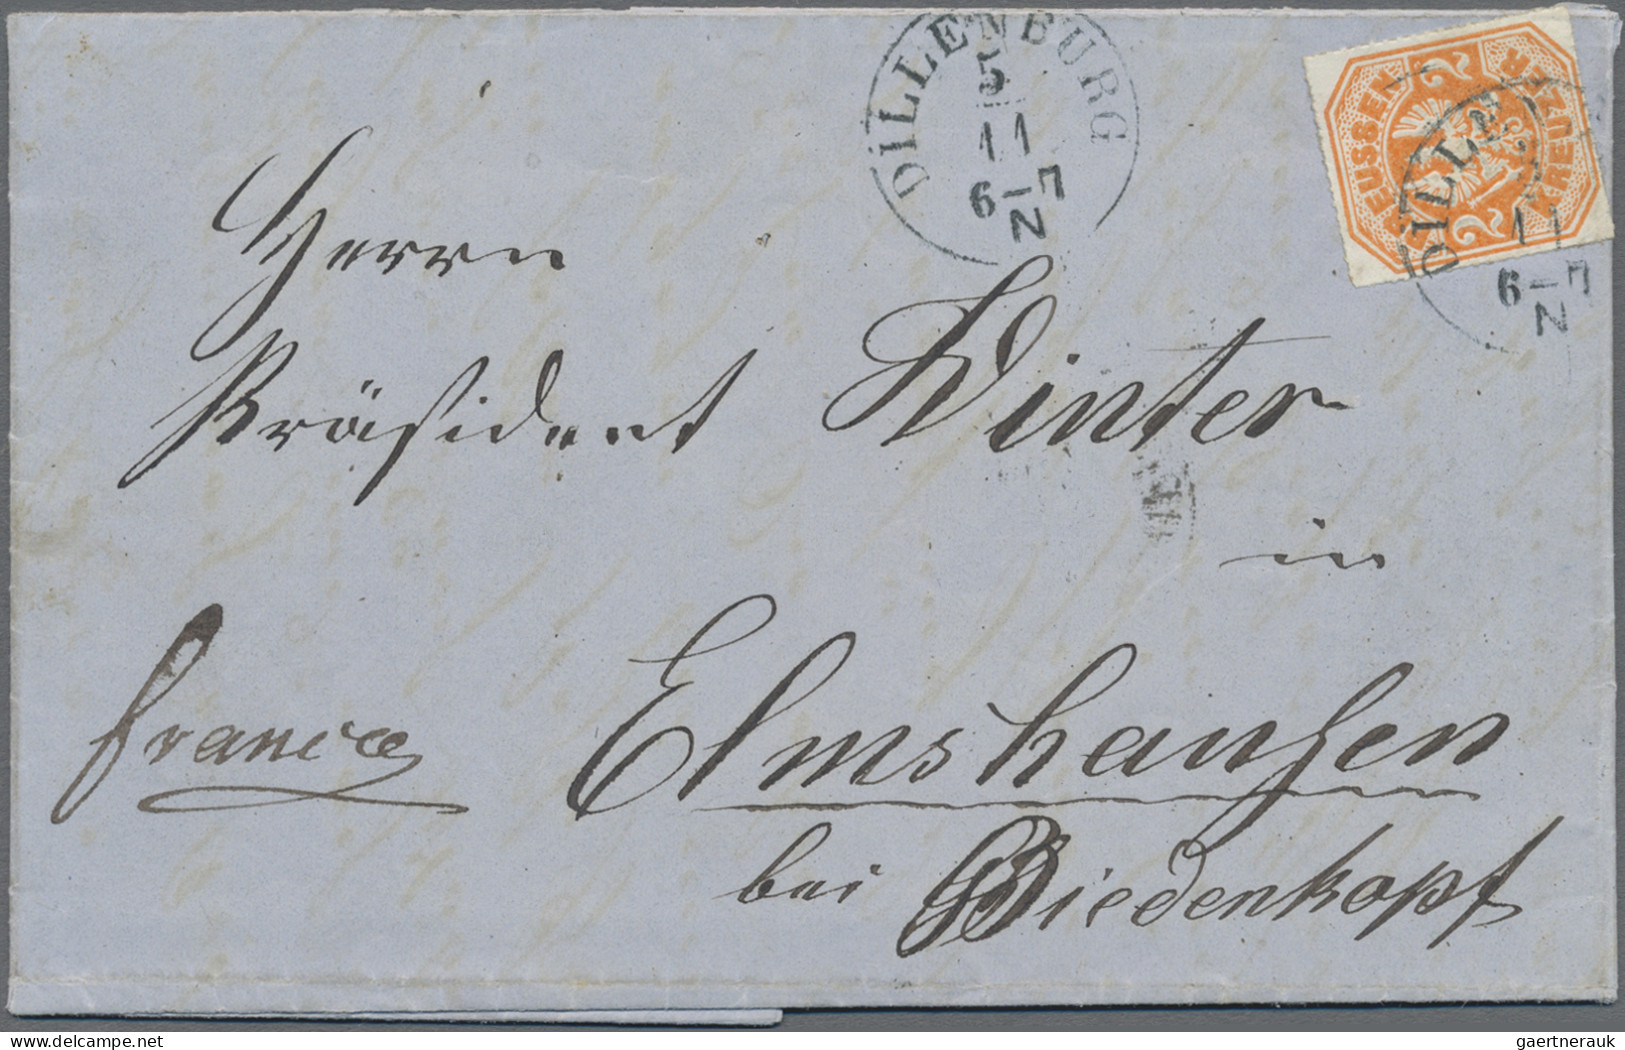 DILLENBURG
5
11
6–7
N
PREUSSEN
KREUZER
DILLE
11
6–7
N
Herrn
Präsident Winter
in
franco
Elmshausen
bei Biedenkopf
gaertnerauk